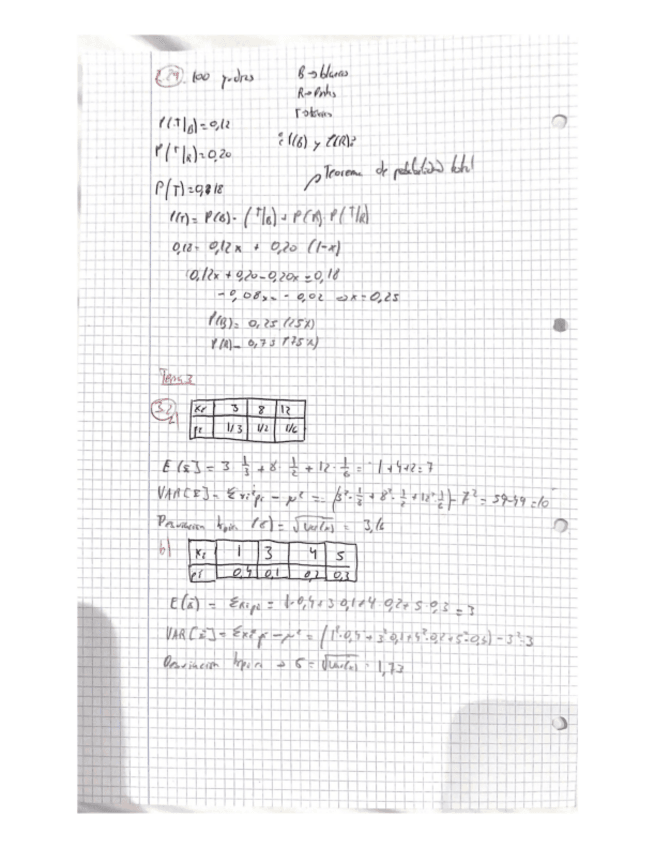 2.29. 100 B→blancos
R→
T→
P(T/B)=0,12
¿P(B) y P(R)?
P(T/R)=0,20
Teorema de probabilidad total
P(T)=0,18
P(T)= P(B)· (T/B) + P(R)· P(T/R)
0,18= 0,12x + 0,20 (1-x)
0,12x + 0,20-0,20x=0,18
-0,08x=-0,02 ⇒x=0,25
P(B)= 0,25 (25%)
P(R)= 0,75 (75%)
Tema 3
3.2
a)
xi 3 8 12
pi 1/3 1/2 1/6
E[x]= 3 1/3 + 8· 1/2 + 12· 1/6 = 1+4+2=7
VAR[x]= Σxi²pi - μ² = (3²·1/3 + 8²·1/2 + 12²·1/6) - 7² = 59-49=10
Desviación típica (σ)= √Var(x) = 3,16
b)
xi 1 3 4 5
pi 0,4 0,1 0,2 0,3
E(x) = Σxipi = 1·0,4+3·0,1+4·0,2+5·0,3=3
VAR[x]=Σxi²pi-μ² = (1²·0,4+3²·0,1+4²·0,2+5²·0,3)-3²=3
Desviación típica → σ = √Var(x) = 1,73